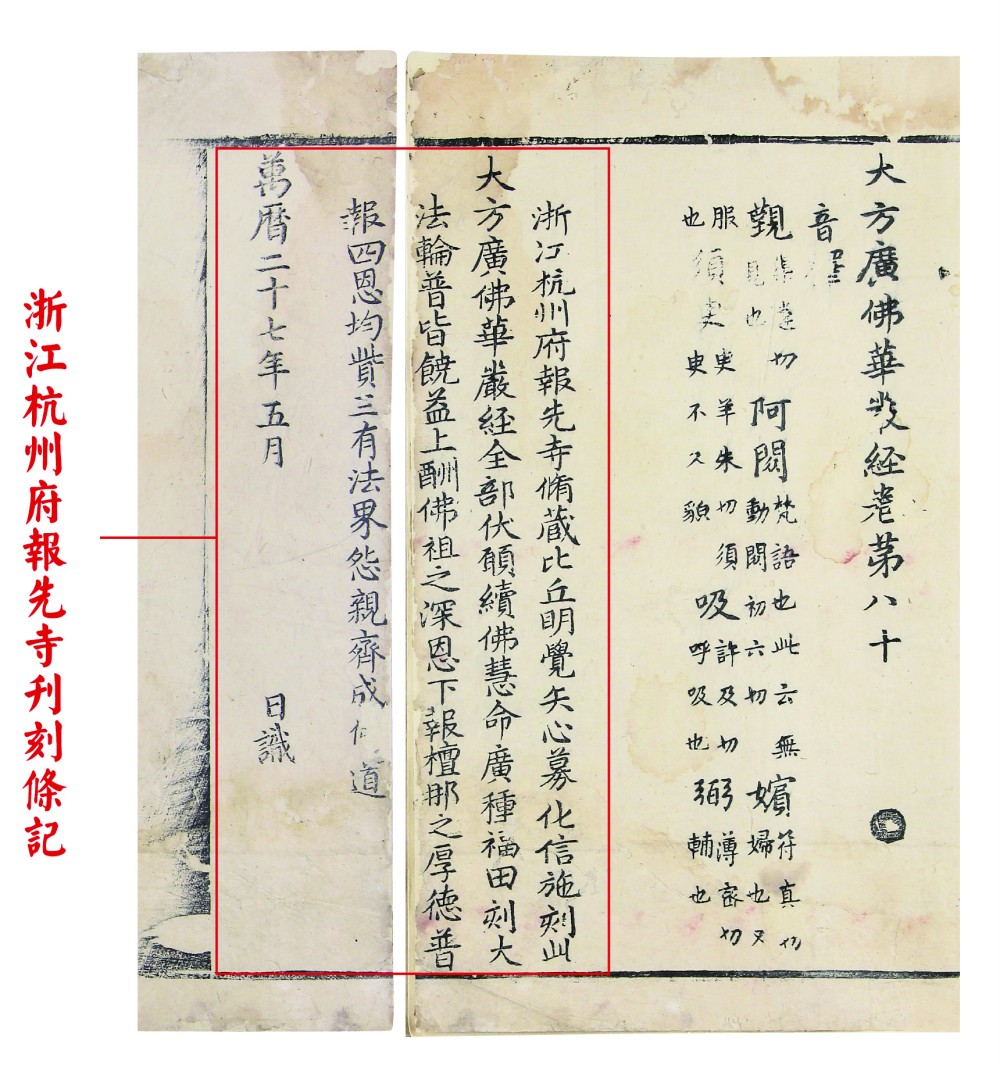 大方廣佛華嚴經卷第八十
音釋
覲切見也阿閦梵語也此云無動閦初六切嬪符真切婦也又
服也須臾臾羊朱切須臾不久貌吸許及切呼吸也弼薄密切輔也
浙江杭州府報先寺脩蔵比丘明覺矢心募化信施刻此
大方廣佛華嚴經全部伏願續佛慧命廣種福田刻大
法輪普皆饒益上酬佛祖之深恩下報檀那之厚徳普
報四恩均貲三有法界怨親齊成道
萬暦二十七年五月 日識
浙江杭州府報先寺刊刻條記